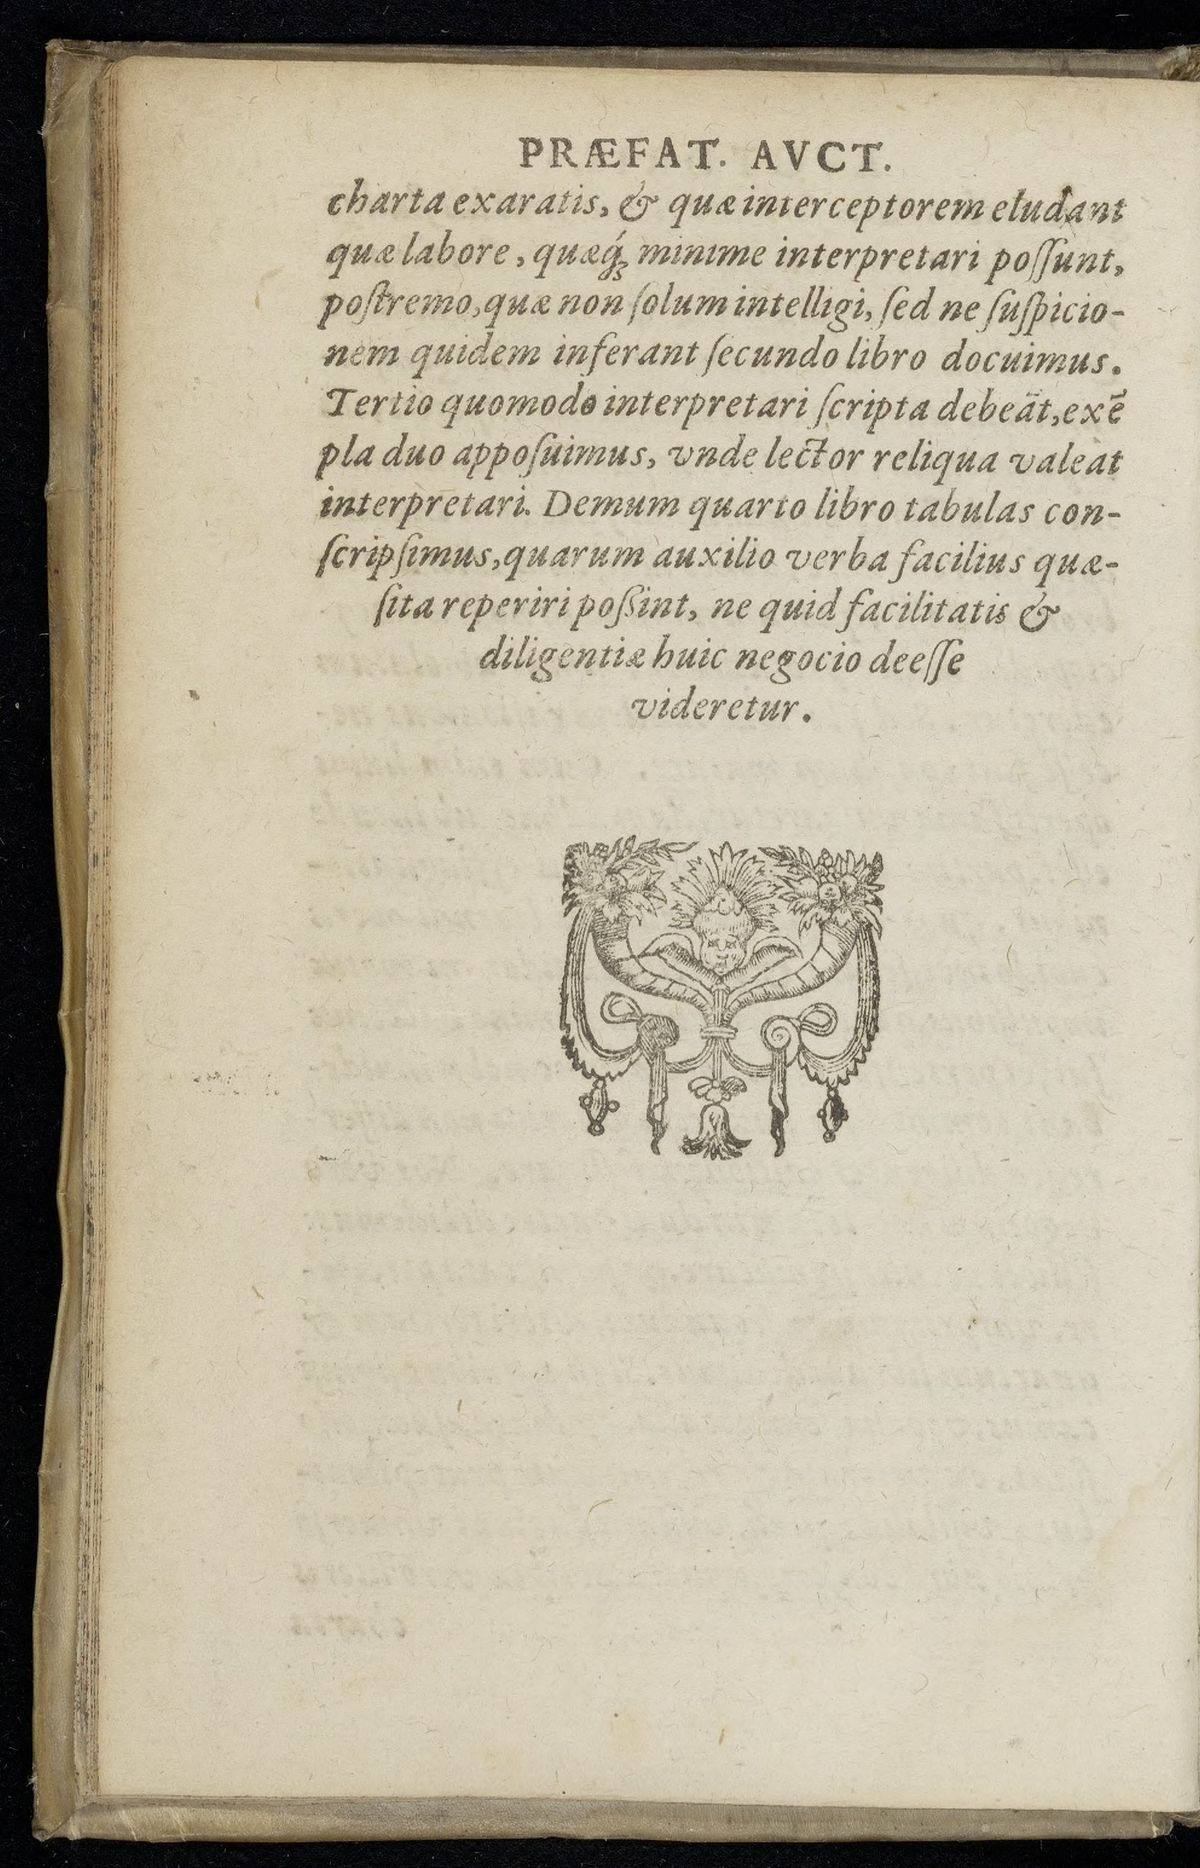 PRÆFAT. AVCT.
charta exaratis, & quæ interceptorem eludant
quæ labore, quæq́ꝫ minime interpretari poſſunt,
poſtremo, quæ non ſolum intelligi, ſed ne ſuſpicio-
nem quidem inferant ſecundo libro docuimus.
Tertio quomodo interpretari ſcripta debeãt, exẽ
pla duo appoſuimus, vnde lector reliqua valeat
interpretari. Demum quarto libro tabulas con-
ſcripſimus, quarum auxilio verba facilius quæ-
ſita reperiri poßint, ne quid facilitatis &
diligentiæ huic negocio deeſſe
videretur.